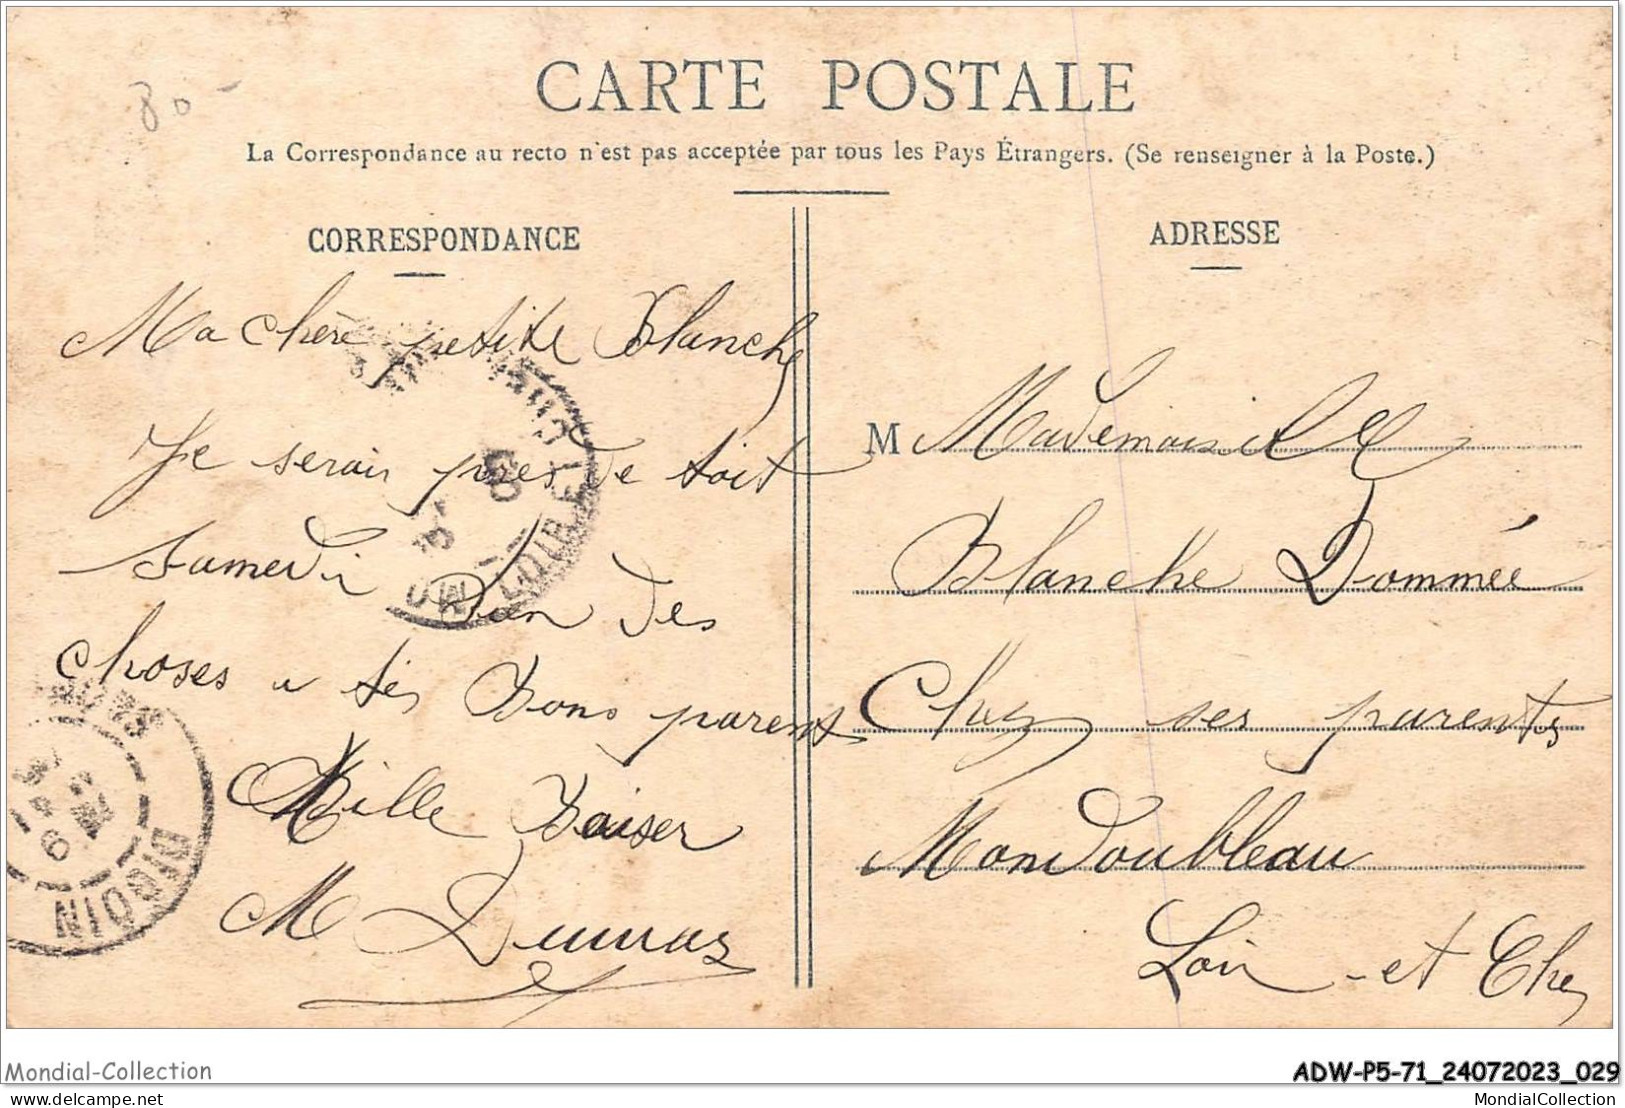 80-
CARTE POSTALE
La Correspondance au recto n'est pas acceptée par tous les Pays Étrangers. (Se renseigner à la Poste.)
CORRESPONDANCE
Ma chère petite Blanche
Je serais près de toit
Samedi Bon des
choses a tes Bons parents
Mille Baiser
M Dumas
ADRESSE
M Mademoiselle
Blanche Dommée
Chez ses parents
Mondoubleau
Loir-et Cher
DIGOIN
Mondial-Collection
ADW-P5-71_24072023_029
delcampe.net
MondialCollection